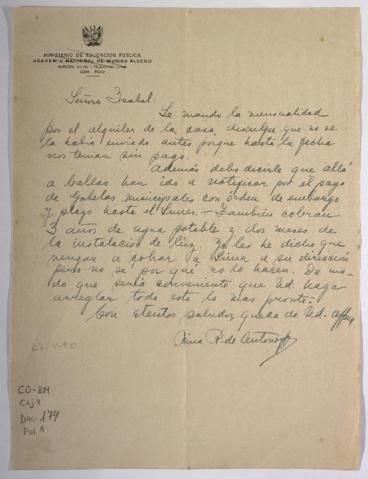 MINISTERIO DE EDUCACION PUBLICA
ACADEMIA NACIONAL DE MUSICA ALCEDO
LIMA - PERU
Señora Isabel.
Le mando la mensualidad
por el alquiler de la casa, disculpe que no se
la habia enviado antes porque hasta la fecha
nos tenian sin pago.
Además debo decirle que allá
a Callao han ido a notificar por el pago
de Gabelas municipales con orden de embargo
y plazo hasta el Lunes. - También cobran
3 años de agua potable y dos meses de
la instalación de luz. Ya les he dicho que
vengan a cobrar a Lima a su dirección
pero no se por que no lo hacen. De mo-
do que seria conveniente que Ud. haga
arreglar todo esto lo mas pronto.
Con atentos saludos, queda de Ud.
Nina R. de Antonoff
CO-BM
Caj 4
Doc. 174
Fol. 1